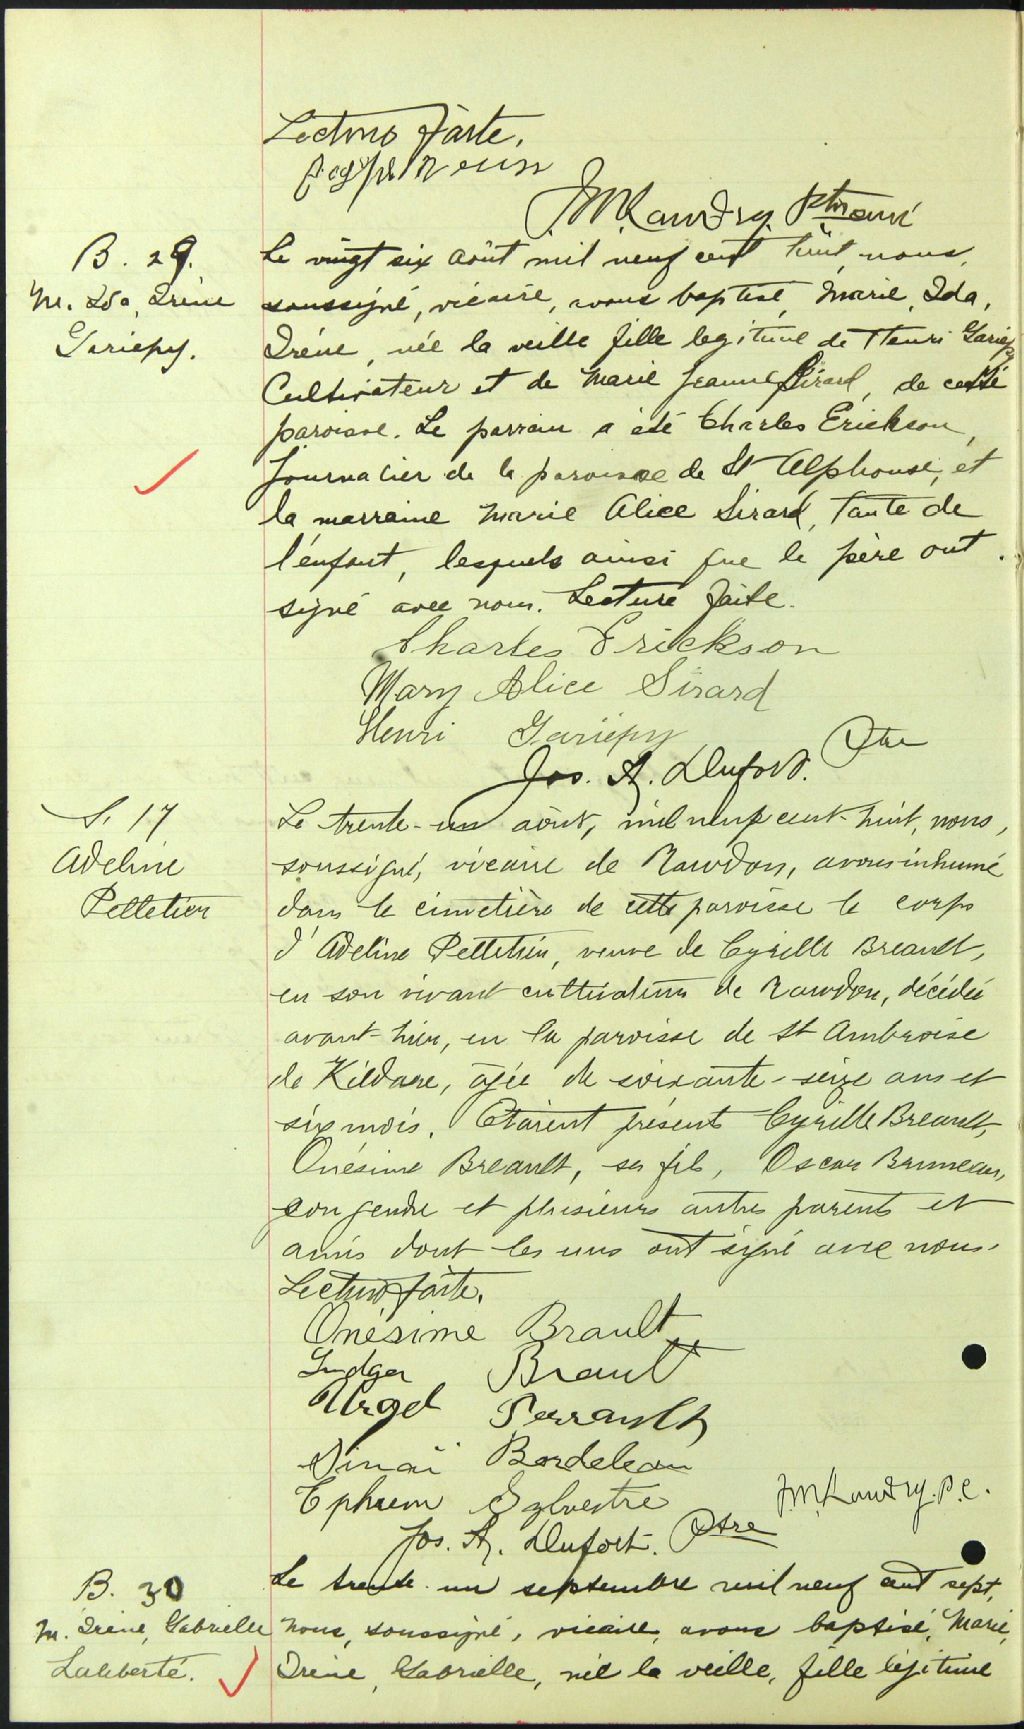 Lecture faite.
J M Landry Ptre curé
B. 29.
M. Ida, Irène
Gariepy.
Le vingt six août mil neuf cent huit, nous,
soussigné, vicaire, avons baptisé, Marie, Ida,
Irène, née la veille fille legitime de Henri Gariepy
Cultivateur et de Marie Jeanne Sirard, de cette
paroisse. Le parrain a été Charles Erickson,
journalier de la paroisse de St Alphonse, et
la marraine Marie Alice Sirard, tante de
l'enfant, lesquels ainsi que le père ont
signé avec nous. Lecture faite.
Charles Erickson
Mary Alice Sirard
Henri Gariépy
Jos. A. Dufort. Ptre
S. 17
Adeline
Pelletier
Le trente-un août, mil neuf cent-huit, nous,
soussigné, vicaire de Rawdon, avons inhumé
dans le cimetière de cette paroisse le corps
d'Adeline Pelletier, veuve de Cyrille Breault,
en son vivant cultivateur de Rawdon, décédée
avant-hier, en la paroisse de St Ambroise
de Kildare, agée de soixante-seize ans et
six mois. Etaient présents Cyrille Breault,
Onésime Breault, ses fils, Oscar Bruneau,
son gendre et plusieurs autres parents et
amis dont les uns ont signé avec nous.
Lecture faite.
Onésime Brault
Ludger Brault
Urgel Perrault
Sinaï Bordeleau
Ephrem Sylvestre
J.M. Landry. p.c.
Jos. A. Dufort. Ptre
B. 30
M. Irène, Gabrielle
Laliberté.
Le trente-un septembre mil neuf cent sept,
nous, soussigné, vicaire, avons baptisé, Marie,
Irène, Gabrielle, née la veille, fille légitime